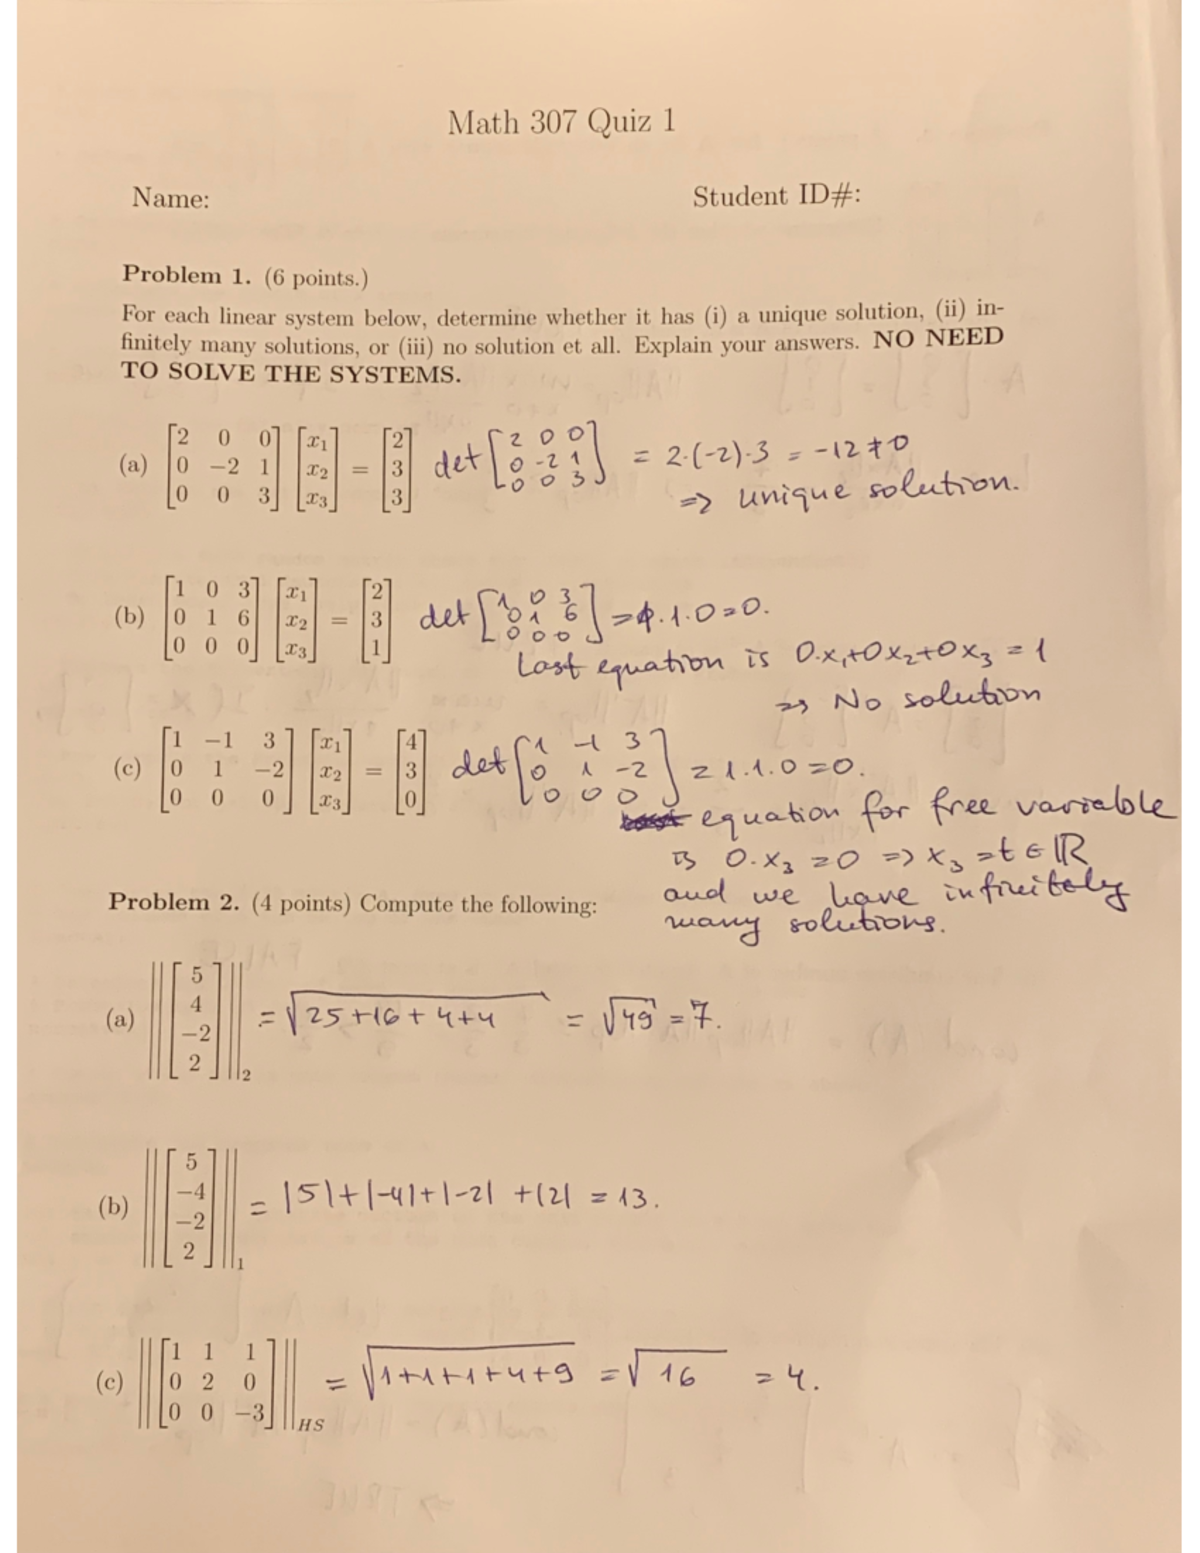 Math 307 Quiz 1
Name: Student ID#:
Problem 1. (6 points.)
For each linear system below, determine whether it has (i) a unique solution, (ii) in-
finitely many solutions, or (iii) no solution et all. Explain your answers. NO NEED
TO SOLVE THE SYSTEMS.
(a) [2 0 0; 0 −2 1; 0 0 3] [x₁; x₂; x₃] = [2; 3; 3] det [2 0 0; 0 -2 1; 0 0 3] = 2·(-2)·3 = -12 ≠ 0
=> unique solution.
(b) [1 0 3; 0 1 6; 0 0 0] [x₁; x₂; x₃] = [2; 3; 1] det [1 0 3; 0 1 6; 0 0 0] = 1·1·0=0.
Last equation is 0·x₁+0x₂+0x₃ = 1
=> No solution
(c) [1 −1 3; 0 1 −2; 0 0 0] [x₁; x₂; x₃] = [4; 3; 0] det [1 -1 3; 0 1 -2; 0 0 0] = 1·1·0=0.
equation for free variable
is 0·x₃ = 0 => x₃ = t ∈ ℝ
and we have infinitely
many solutions.
Problem 2. (4 points) Compute the following:
(a) ||[5; 4; −2; 2]||₂ = √(25+16+4+4) = √49 = 7.
(b) ||[5; −4; −2; 2]||₁ = |5|+|-4|+|-2| +|2| = 13.
(c) ||[1 1 1; 0 2 0; 0 0 −3]||HS = √(1+1+1+4+9) = √16 = 4.